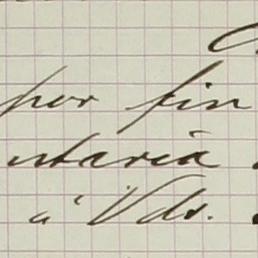 por fin
entaria
á Vds.